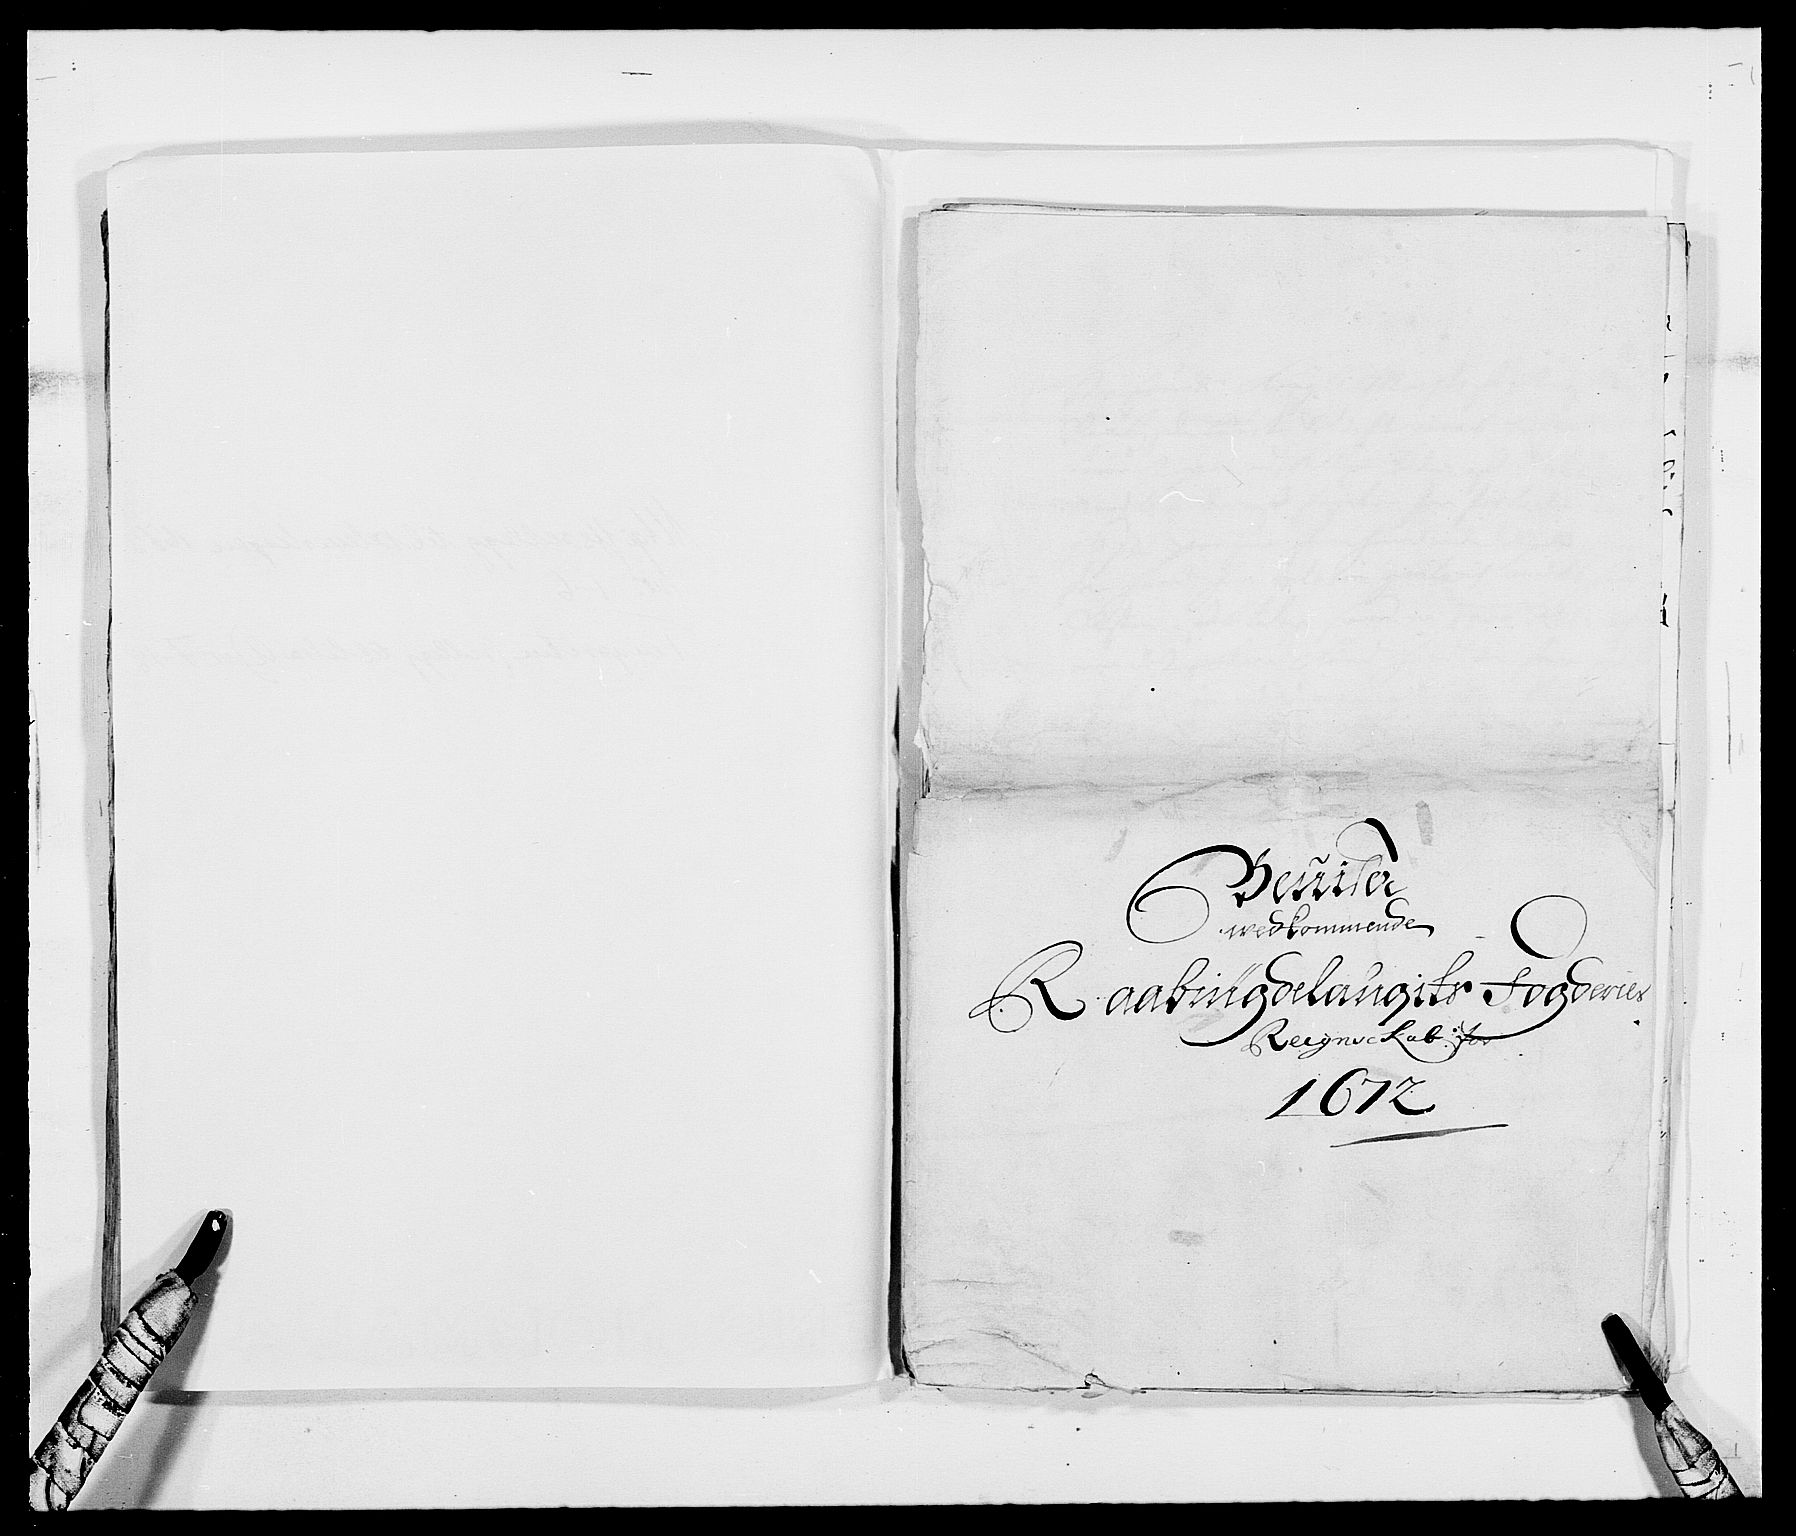 Beuiser
wedkommende
Raabÿgdelaugits fogderies
Regnschab for
1672